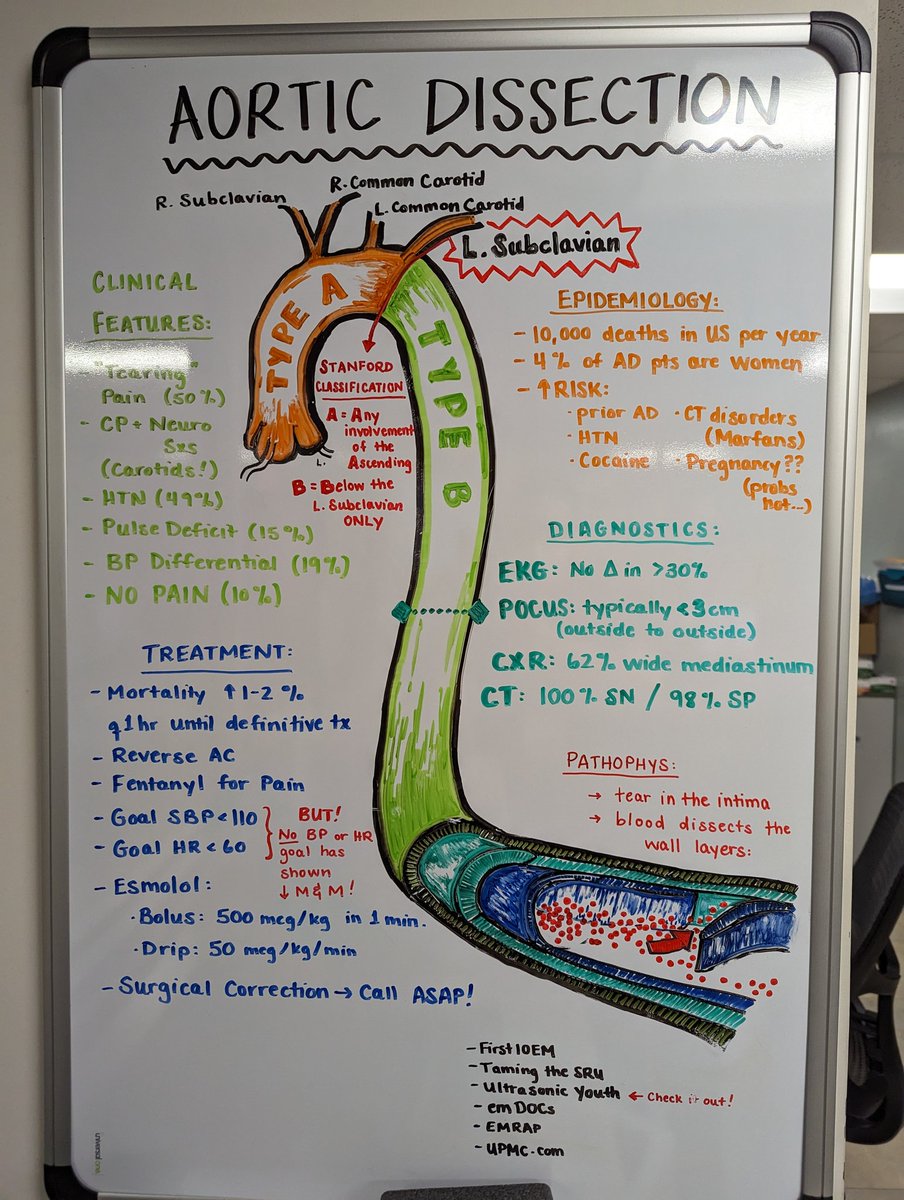 AORTIC DISSECTION
R. Subclavian
R. Common Carotid
L. Common Carotid
L. Subclavian
TYPE A
TYPE B
STANFORD
CLASSIFICATION
A = Any
involvement
of the
Ascending
B = Below the
L. Subclavian
ONLY
CLINICAL
FEATURES:
- "Tearing"
Pain (50%)
- CP + Neuro
Sxs
(Carotids!)
- HTN (49%)
- Pulse Deficit (15%)
- BP Differential (19%)
- NO PAIN (10%)
TREATMENT:
- Mortality ↑ 1-2 %
q1hr until definitive tx
- Reverse AC
- Fentanyl for Pain
- Goal SBP < 110
- Goal HR < 60
BUT!
No BP or HR
goal has
shown
↓ M & M !
- Esmolol:
· Bolus: 500 mcg/kg in 1 min.
· Drip: 50 mcg/kg/min
- Surgical Correction → Call ASAP!
EPIDEMIOLOGY:
- 10,000 deaths in US per year
- 4% of AD pts are Women
- ↑ RISK:
· prior AD · CT disorders
(Marfans)
· HTN
· Cocaine · Pregnancy??
(probs
not...)
DIAGNOSTICS:
EKG: No Δ in >30%
POCUS: typically <3cm
(outside to outside)
CXR: 62% wide mediastinum
CT: 100% SN / 98% SP
PATHOPHYS:
→ tear in the intima
→ blood dissects the
wall layers:
- First10EM
- Taming the SRU
- Ultrasonic Youth ← Check it out!
- emDOCs
- EMRAP
- UPMC.com
universal one